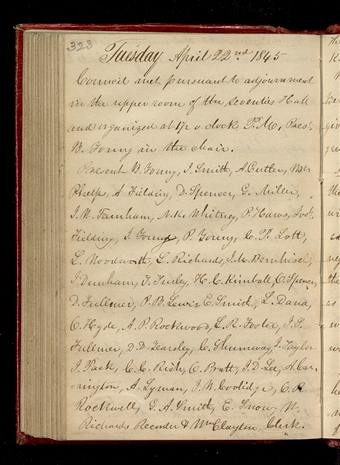 323
Tuesday April 22nd 1845
Council met pursuant to adjournment
in the upper room of the Seventies Hall
and organized at 1/2 o clock P.M., Pres.
B. Young in the chair.
Present B. Young, J. Smith, A. Cutler, W.W.
Phelps, A. Fielding, D. Spencer, G. Miller,
J. W. Farnham, N. K. Whitney, P. Haws, Jos.
Fielding, J. Young, P. Young, C. P. Lott,
L. Woodworth, L. Richards, J. M. Bernhisel,
J. Dunham, F. Finley, H. C. Kimball, O. Spencer,
D. Fullmer, P. B. Lewis, E. Smith, L. Dana,
O. Hyde, A. P. Rockwood, L. R. Foster, J. S.
Fullmer, D. D. Yearsley, C. Shumway, J. Taylor
J. Pack, C. C. Rich, O. Pratt, J. D. Lee, A. Car-
rington, A. Lyman, J. W. Coolidge, O. P.
Rockwell, G. A. Smith, E. Snow, W.
Richards Recorder & Wm Clayton, Clerk.